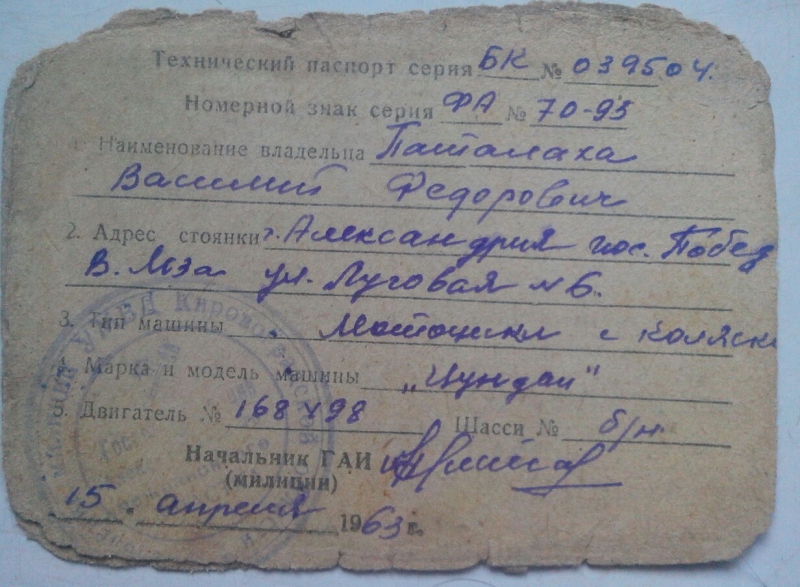 Технический паспорт серия БК № 039504.
Номерной знак серия ФА № 70-93
1. Наименование владельца Паталаха
Василий Федорович
2. Адрес стоянки г. Александрия пос. Побед
ул. Луговая № 6.
3. Тип машины Мотоцикл с коляск
4. Марка и модель машины „Цундап"
5. Двигатель № 168498 Шасси № б/н
Начальник ГАИ
(милиции)
15. апреля 1963 г.